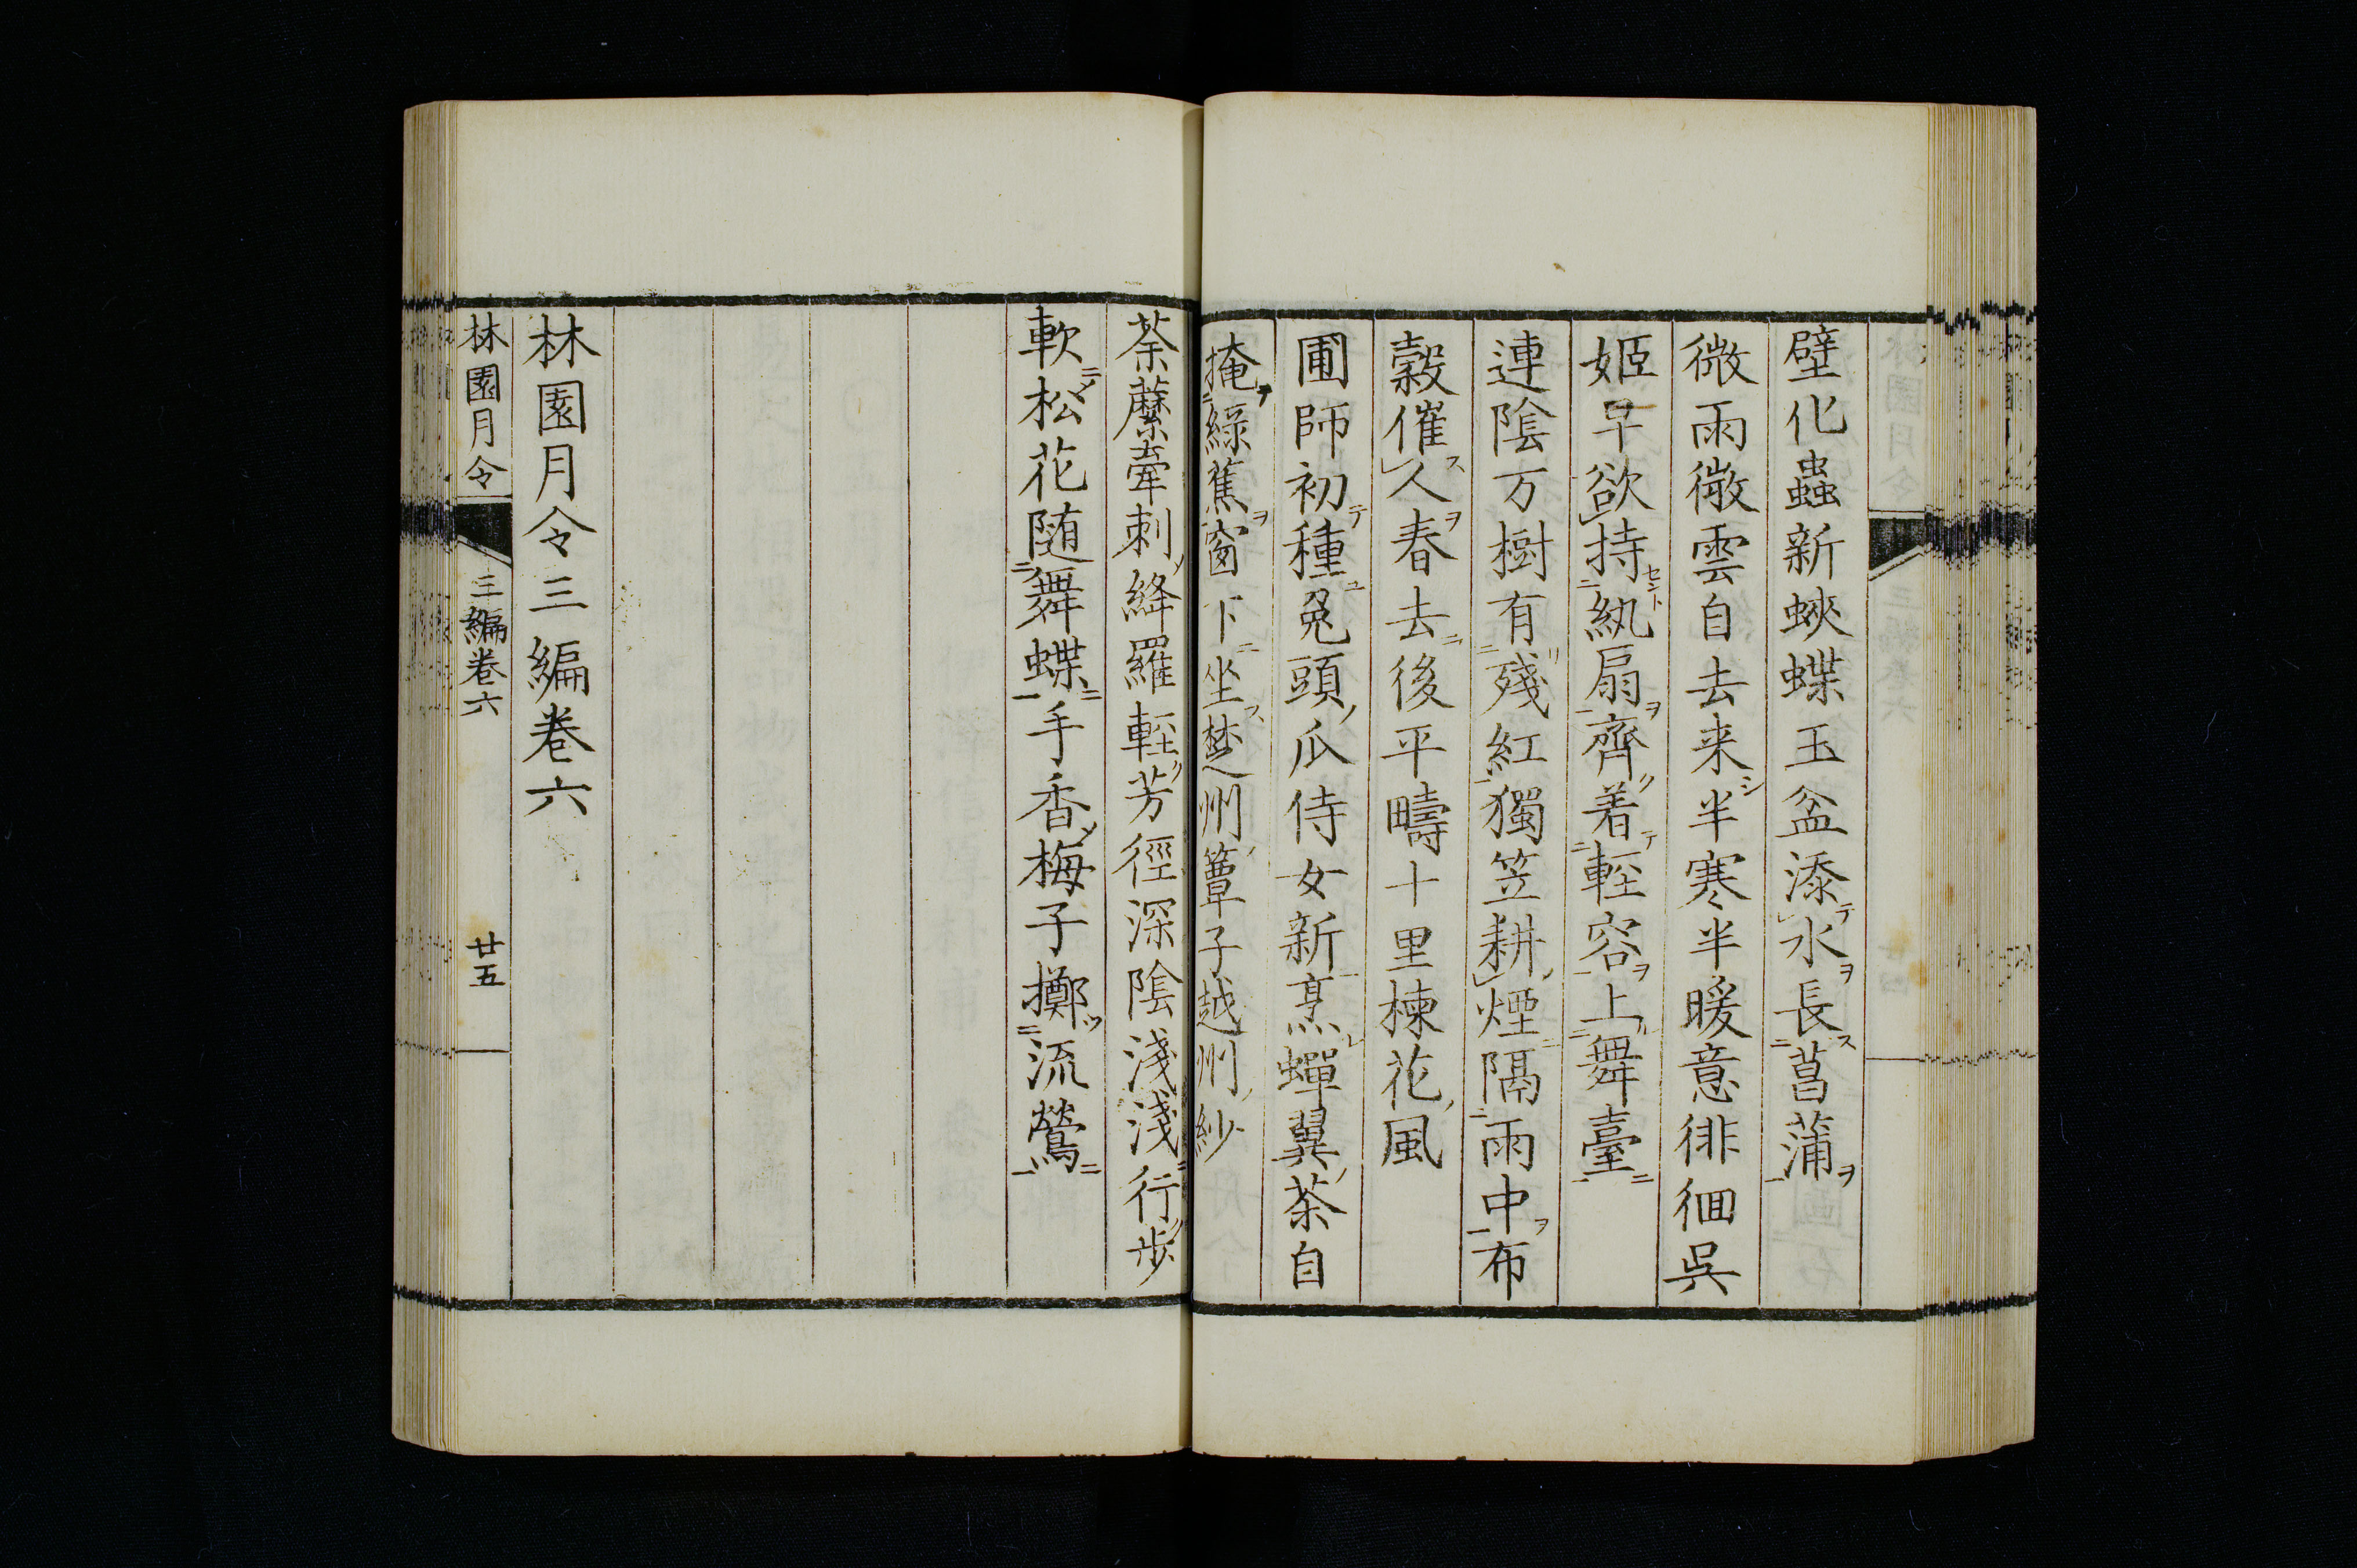 壁化蟲新蛺蝶玉盆添水長菖蒲
微雨微雲自去来半寒半暖意徘徊呉
姫早欲持紈扇齊着輕容上舞臺
連陰万樹有殘紅獨笠耕煙隔雨中布
穀催人春去後平疇十里楝花風
圃師初種兎頭瓜侍女新烹蟬翼茶自
掩緑蕉窗下坐楚州簟子越州紗
荼蘼牽刺絳羅輕芳徑深陰淺淺行歩
軟松花随舞蝶手香梅子擲流鶯
林園月令三編巻六
林園月令 三編巻六 廿五